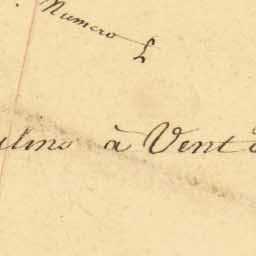 Numero L
ulins à Vent d